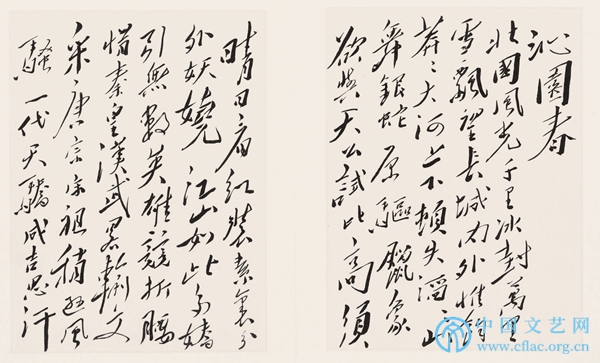 沁園春
北國風光千里冰封萬里
雪飄望長城内外惟餘
莽々大河上下頓失滔々山
舞銀蛇原驅臘象
欲與天公試比高須
晴日看紅裝素裹分
外妖嬈江山如此多嬌
引無數英雄競折腰
惜秦皇漢武略輸文
采唐宗宋祖稍遜風
騷一代天驕成吉思汗
中国文艺网
www.cflac.org.cn